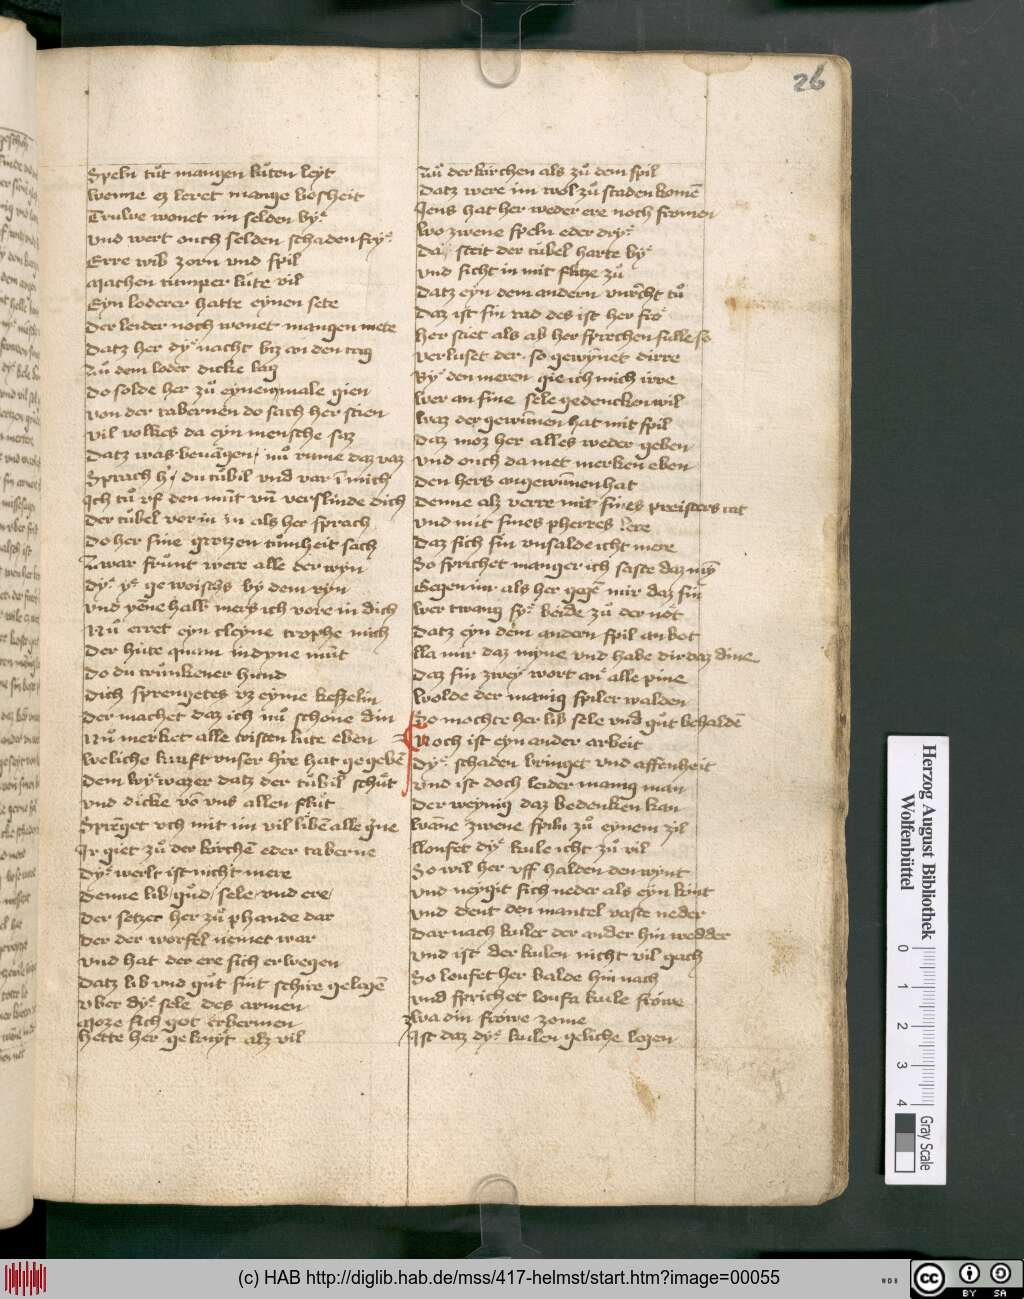 26
Speln tůt mangen lůten leyt
wenne ez leret mange boscheit
Truwe wonet im selden by
vnd wert ouch selden schaden fry
Erre wib zorn vnd spil
Machen tumper lute vil
Eyn loderer hatte eynen sete
Der leider noch wonet mangen mete
Datz her dy nacht biz an den tag
Zů dem loder dicke lag
Do solde her zů eynem male gien
von der tabernen do sach her stien
vil volkes da eyn mensche saz
Datz was beuangen / nů rume daz vaz
Sprach h / du tůbil vnd var ī mich
Ich tů vf den můt vn̄ verslinde dich
Der tůbel vor in in als her sprach
Do her sine grotzen tůmheit sach
Zwar frůnt were alle der wyn
Dy ye gewoischs by dem ryn
vnd yēne halb mers ich vore in dich
Nů erret eyn cleyne trophe mich
Der hute quam in dyne můt
Do du trůnkener hund
Dich sprengetes vz eyme kesselin
Der machet daz ich nů schone din
Nů merket alle cristen lute eben
weliche kraft vnser hre hat gegebē
Dem wy wazer datz der tůbil schůt
vnd dicke vō vns allen flůt
Sprēget vch mit im vil libē alle gne
Ir giet zů der kirchē eder taberne
Dy werlt ist nicht mere
Denne lib / gůd / sele / vnd ere /
Der setzet her zů phande dar
Der der worfel nemet war
vnd hat der ere sich erwegen
Datz lib vnd gůt sint schire gelegē
vber dy sele des armen
Moze sich got erbermen
Hette her geknyt alz vil
Zů der kirchen als zů dem spil
Datz were im wol zů staden komē
Iens hat her weder ere noch fromen
wo zwene speln eder dry
Da steit der tůbel harte by
vnd sicht in mit flitze zů
Datz eyn dem andern vnrecht tů
Daz ist sin rad des ist her fro
her stiet als ab her sprechen sulle so
verluset der so gewynet dirre
By den meren gie ich mich irre
wer an sine sele gedencken wil
waz der gewinnen hat mit spil
Daz moz her alles weder geben
vnd ouch da met merken eben
Den hers angewinnen hat
Denne alz verre mit sines preisters rat
vnd mit sines pherres lere
Daz sich sin vnsalde icht mere
So sprichet manger ich saste daz my
Gegen im als her gegē mir daz sin
wer twang sy beide zů der not
Datz eyn dem andern spil anbot
lla mir daz myne vnd habe dir daz dine
Daz sin zwey wort an alle pine
wolde der manig spiler walden
So mochte her lib sele vnd gůt behaldē
Noch ist eyn ander arbeit
Dy schaden bringet vnd affenheit
vnd ist doch leider manig man
Der weynig daz bedenken kan
wane zwene spiln zů eynem zil
lloufet dy kule icht zů vil
So wil her vff halden den wynt
vnd neygit sich neder als eyn kint
vnd dent den mantel vaste neder
Dar nach kulet der ander hin wedder
vnd ist der kulen nicht vil gach
So loufet her balde hin nach
vnd sprichet loufa kule frowe
zwa din frowe zome
Ist daz dy kulen geliche legen
Herzog August Bibliothek
Wolfenbüttel
0 1 2 3 4
Gray Scale
(c) HAB http://diglib.hab.de/mss/417-helmst/start.htm?image=00055
WDB
cc BY SA